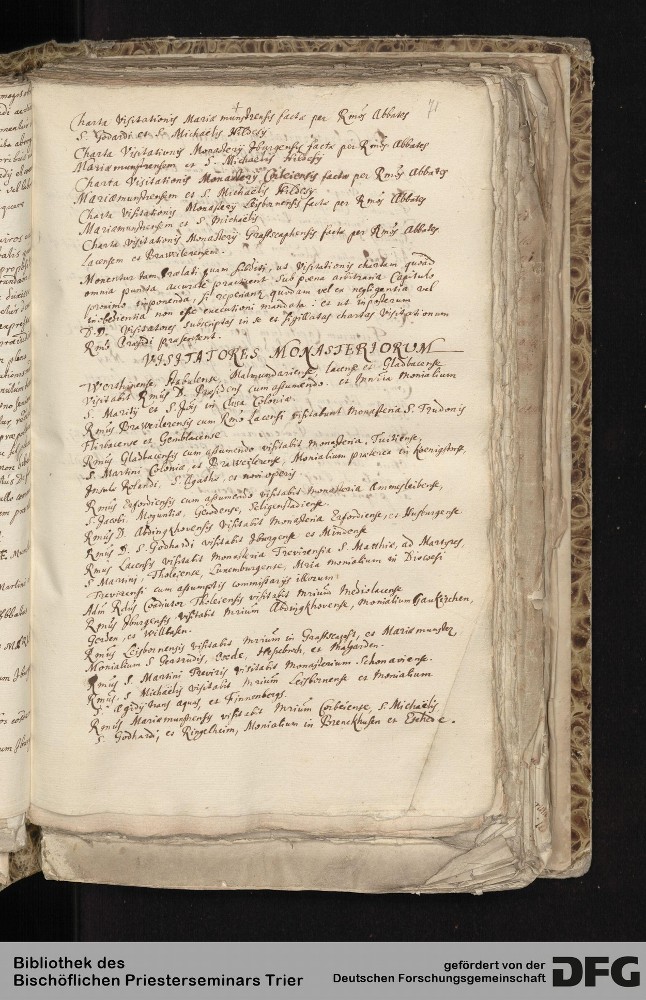 71
Charta Visitationis Mariae munstrensis facta per Rmos Abbates
S. Godardi et S. Michaelis Hildesij
Charta Visitationis Monasterij Iburgensis facta per Rmos Abbates
Mariaemunstrensem et S. Michaelis Hildesij
Charta Visitationis Monasterij Corbeiensis facta per Rmos Abbates
Mariaemunstrensem et S. Michaelis Hildesij
Charta Visitationis Monasterij Leisbornensis facta per Rmos Abbates
Mariaemunstrensem et S. Michaelis
Charta Visitationis Monasterij Grafscaphensis facta per Rmos Abbates
Lacensem et Brawilerensem.
Monentur tam Praelati quam subditi, ut Visitationis chartam quoad
omnia puncta accurate practicent sub poena arbitraria Capitulo
proximo imponenda, si reperiantur quodam vel ex negligentia vel
inobedientia non esse executioni mandata: et ut inposterum
D.D. Visitatores subscriptas in se et sigillatas chartas Visitationum
Rmo Praesidi praesentent.
VISITATORES MONASTERIORUM
Werthinense, Stabulense, Malmundariense, Lacense et Gladbacense
visitabit Rmus D. Praesident cum assumendo. et Mnria Monialium
S. Mauritij et S. in Colonia
Rmus Brawilerensis cum Rmo Lacensi visitabunt Monasteria S. Trudonis
Florbacense et Gemblacense
Rmus Gladbacensis cum assumendo visitabit monasteria, Tuitiense,
S. Martini Coloniae et Brawilerense, Monialium praeterea in Koenigsdorff,
Insula Rolandi, S. Agathae, et novi operis
Rmus Erfordiensis cum assumendo visitabit monasteria Ammesleibense,
S. Jacobi, Moguntiae, Seligenstadiense.
Rmus D. Abdingkhovensis visitabit Monasteria Erfordiense, et Husburgense
Rmus D. S. Godhardi visitabit Iburgense et Mindense
Rmus Lacensis visitabit monasteria Trevirensia S. Matthiae, ad Martyres,
S. Martini, Tholeiense, Luxemburgense, Mria monialium in Dioecesi
Trevirensi cum assumptis commissarijs illorum.
Adm Rdus Coadiutor Tholeiensis visitabit Mrium Mediolacense
Rmus Iburgensis visitabit Mrium Abdingkhovense, monialium Gaukirchen,
Gerden, et Willbasen.
Rmus Leisbornensis visitabit Mrium in Grafscapff, et Mariaemunster,
Monialium S. Gertrudis, Oeede, Herseboch, et Malgarden.
Rmus S. Martini Treviris visitabit Monasterium Schonaviense.
Rmus S. Michaelis visitabit Mrium Leisbornense et Monialium
S. Aegidij trans aquas, et Finnenbergs.
Rmus Mariaemunstrensis visitabit Mrium Corbeiense, S. Michaelis
S. Godhardi, et Ringelheim, Monialium in Brenckhusen et Escherde.
Bibliothek des
Bischöflichen Priesterseminars Trier
gefördert von der
Deutschen Forschungsgemeinschaft
DFG